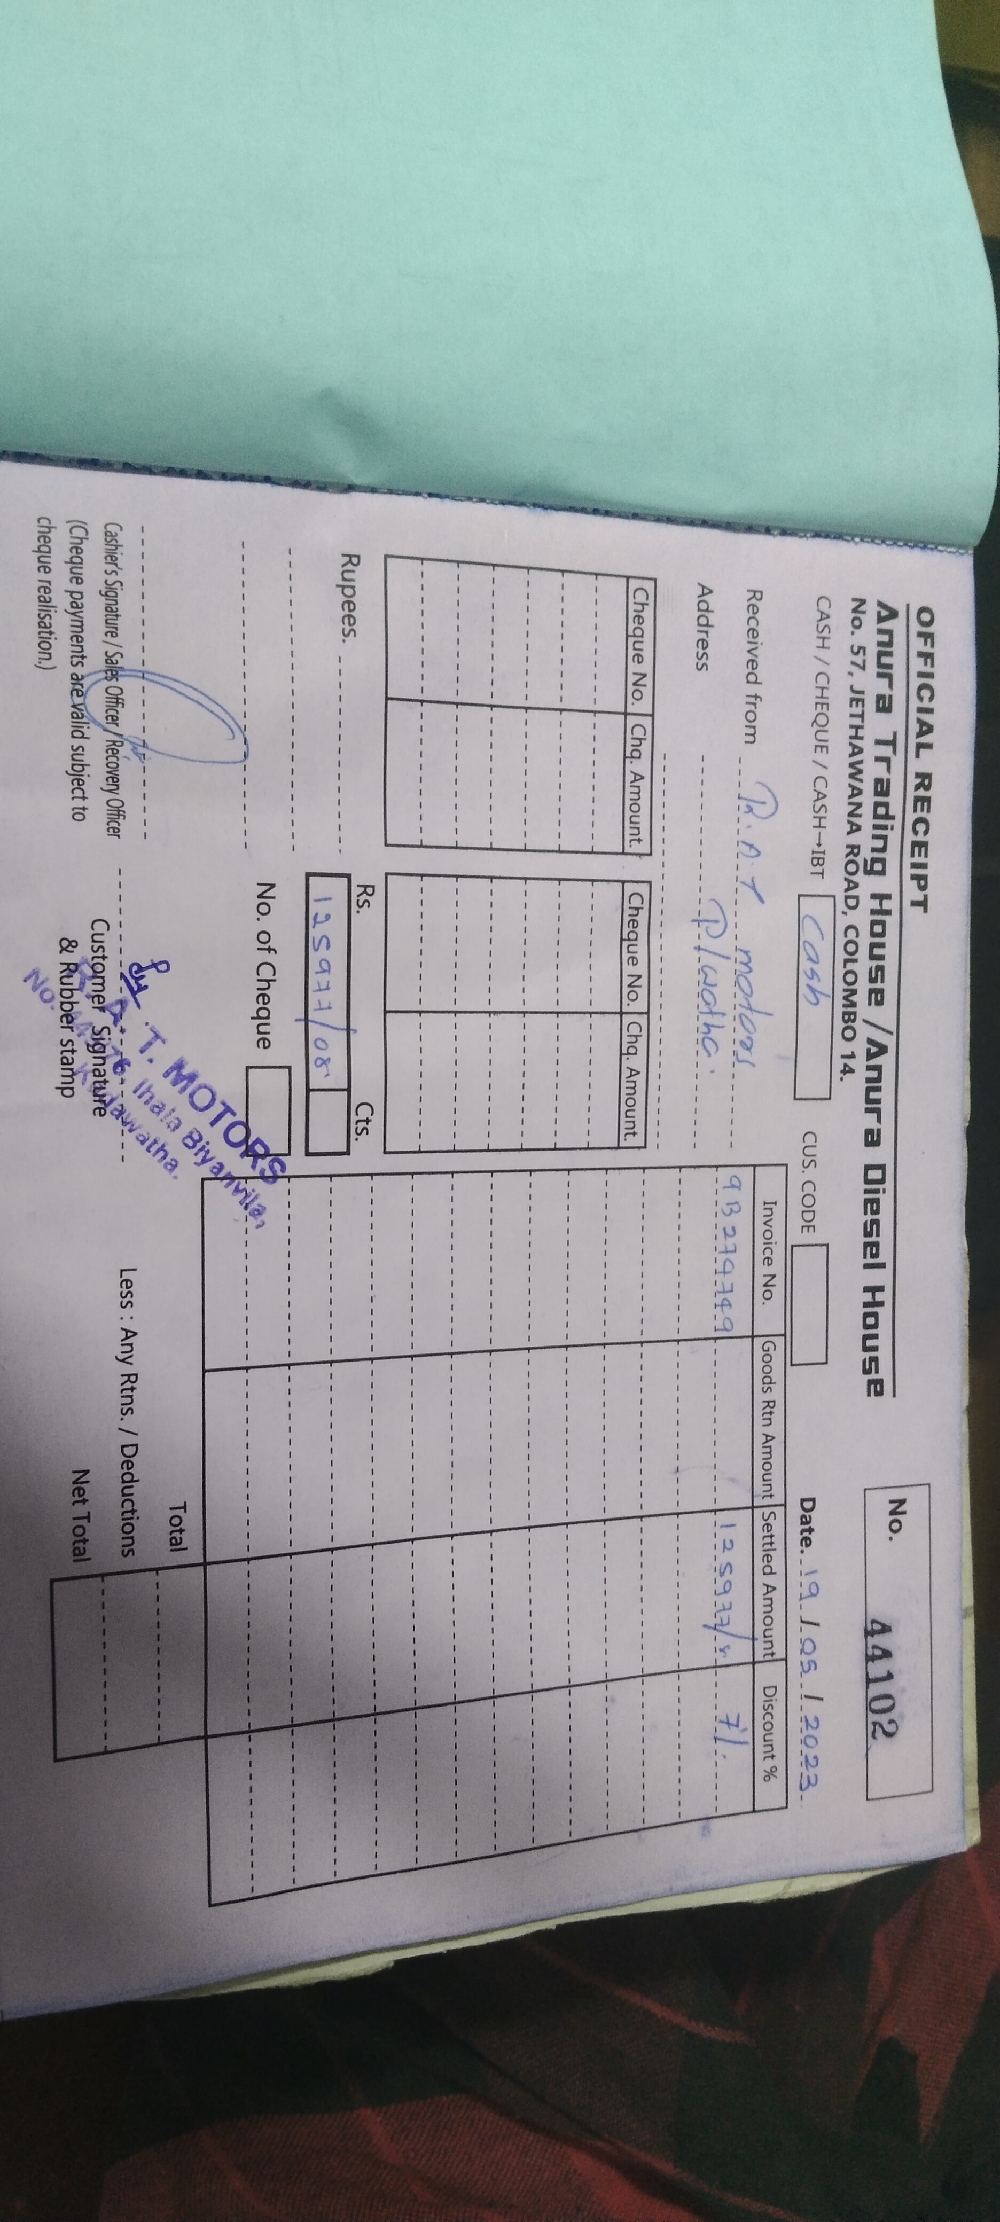 OFFICIAL RECEIPT
No. 44102
Anura Trading House / Anura Diesel House
No. 57, JETHAWANA ROAD, COLOMBO 14.
CASH / CHEQUE / CASH→IBT Cash CUS. CODE Date. 19 / 05 / 2023
Received from R.A.T motors
Address
Cheque No. Chq. Amount. Cheque No. Chq. Amount.
Invoice No. Goods Rtn Amount Settled Amount Discount %
7%
Rupees.
Rs. Cts.
125977/08
No. of Cheque
Total
Less : Any Rtns. / Deductions
Net Total
Cashier's Signature / Sales Officer / Recovery Officer
(Cheque payments are valid subject to
cheque realisation.)
Customer Signature
& Rubber stamp
R. A. T. MOTORS
Ihala Biyanvila,
Kadawatha.